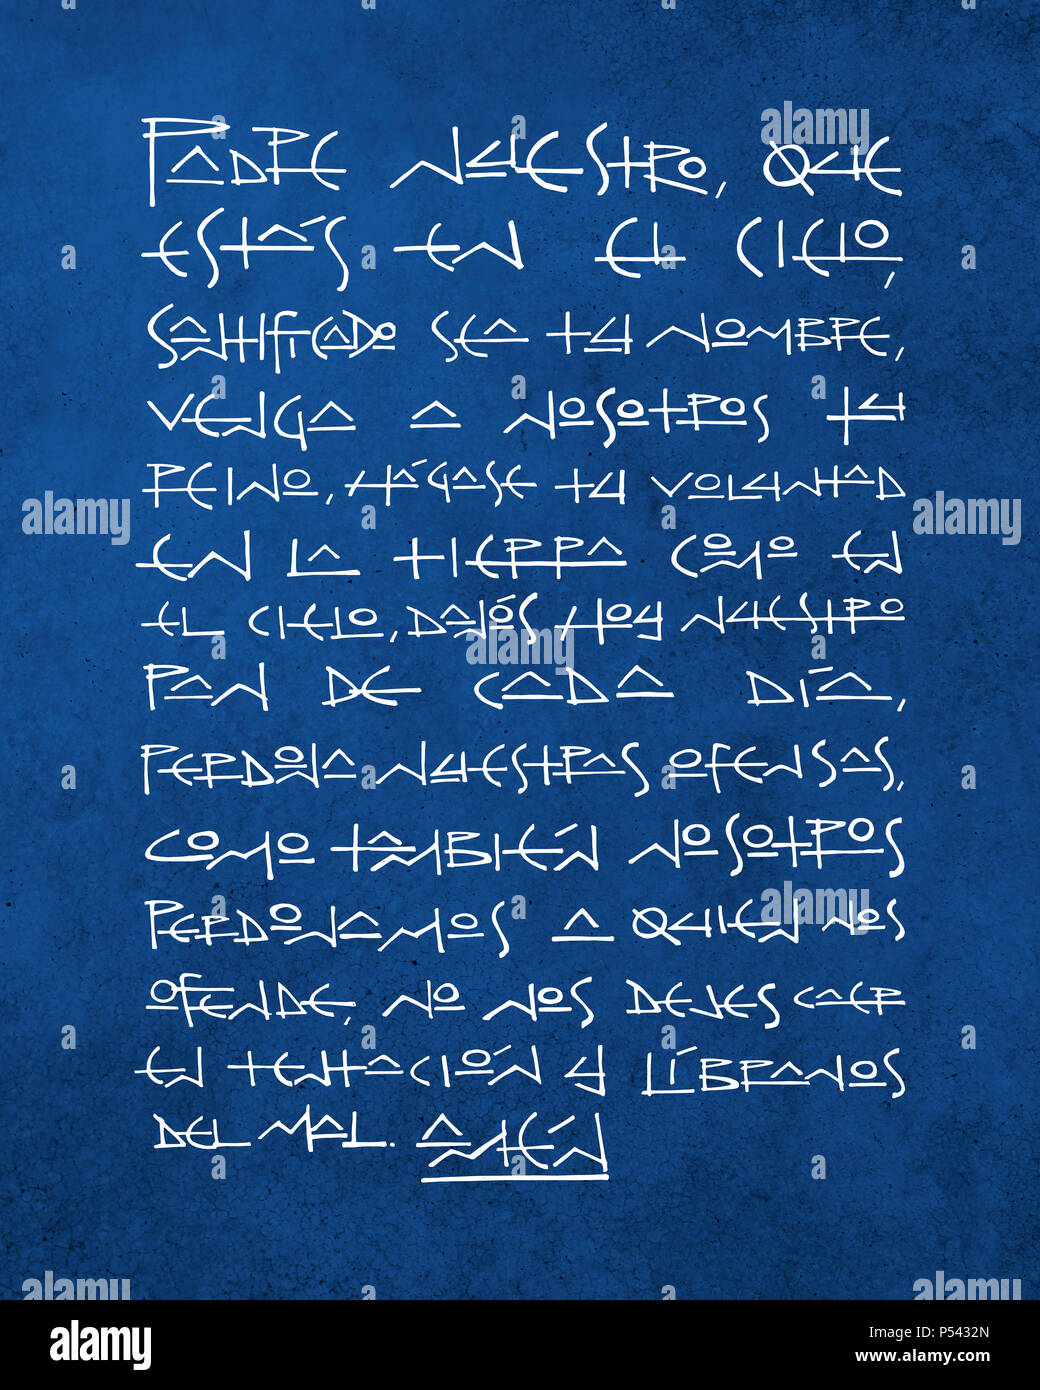 PADRE NUESTRO, QUE
ESTÁS EN EL CIELO,
SANTIFICADO SEA TU NOMBRE,
VENGA A NOSOTROS TU
REINO, HÁGASE TU VOLUNTAD
EN LA TIERRA COMO EN
EL CIELO, DANÓS HOY NUESTRO
PAN DE CADA DÍA,
PERDONA NUESTRAS OFENSAS,
COMO TAMBIÉN NOSOTROS
PERDONAMOS A QUIEN NOS
OFENDE, NO NOS DEJES CAER
EN TENTACIÓN Y LÍBRANOS
DEL MAL. AMÉN
alamy
Image ID: P5432N
www.alamy.com